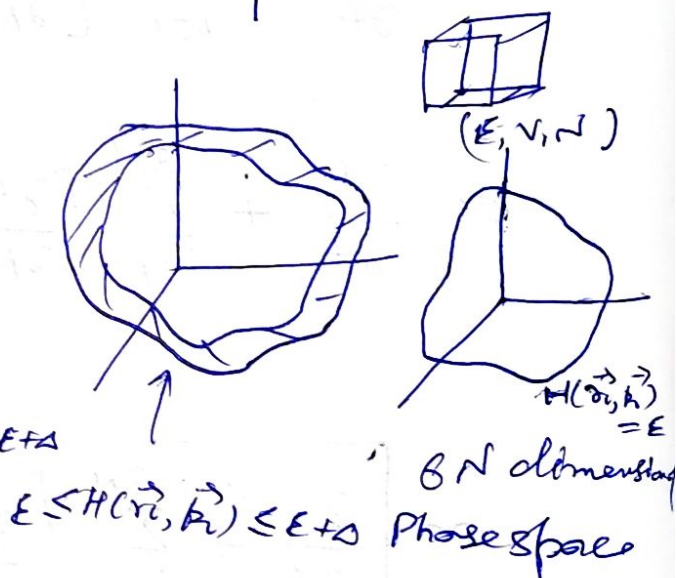 (E, V, N)
H(r⃗i, p⃗i)
= E
6N dimension
E+Δ
E ≤ H(r⃗i, p⃗i) ≤ E+Δ
Phase space